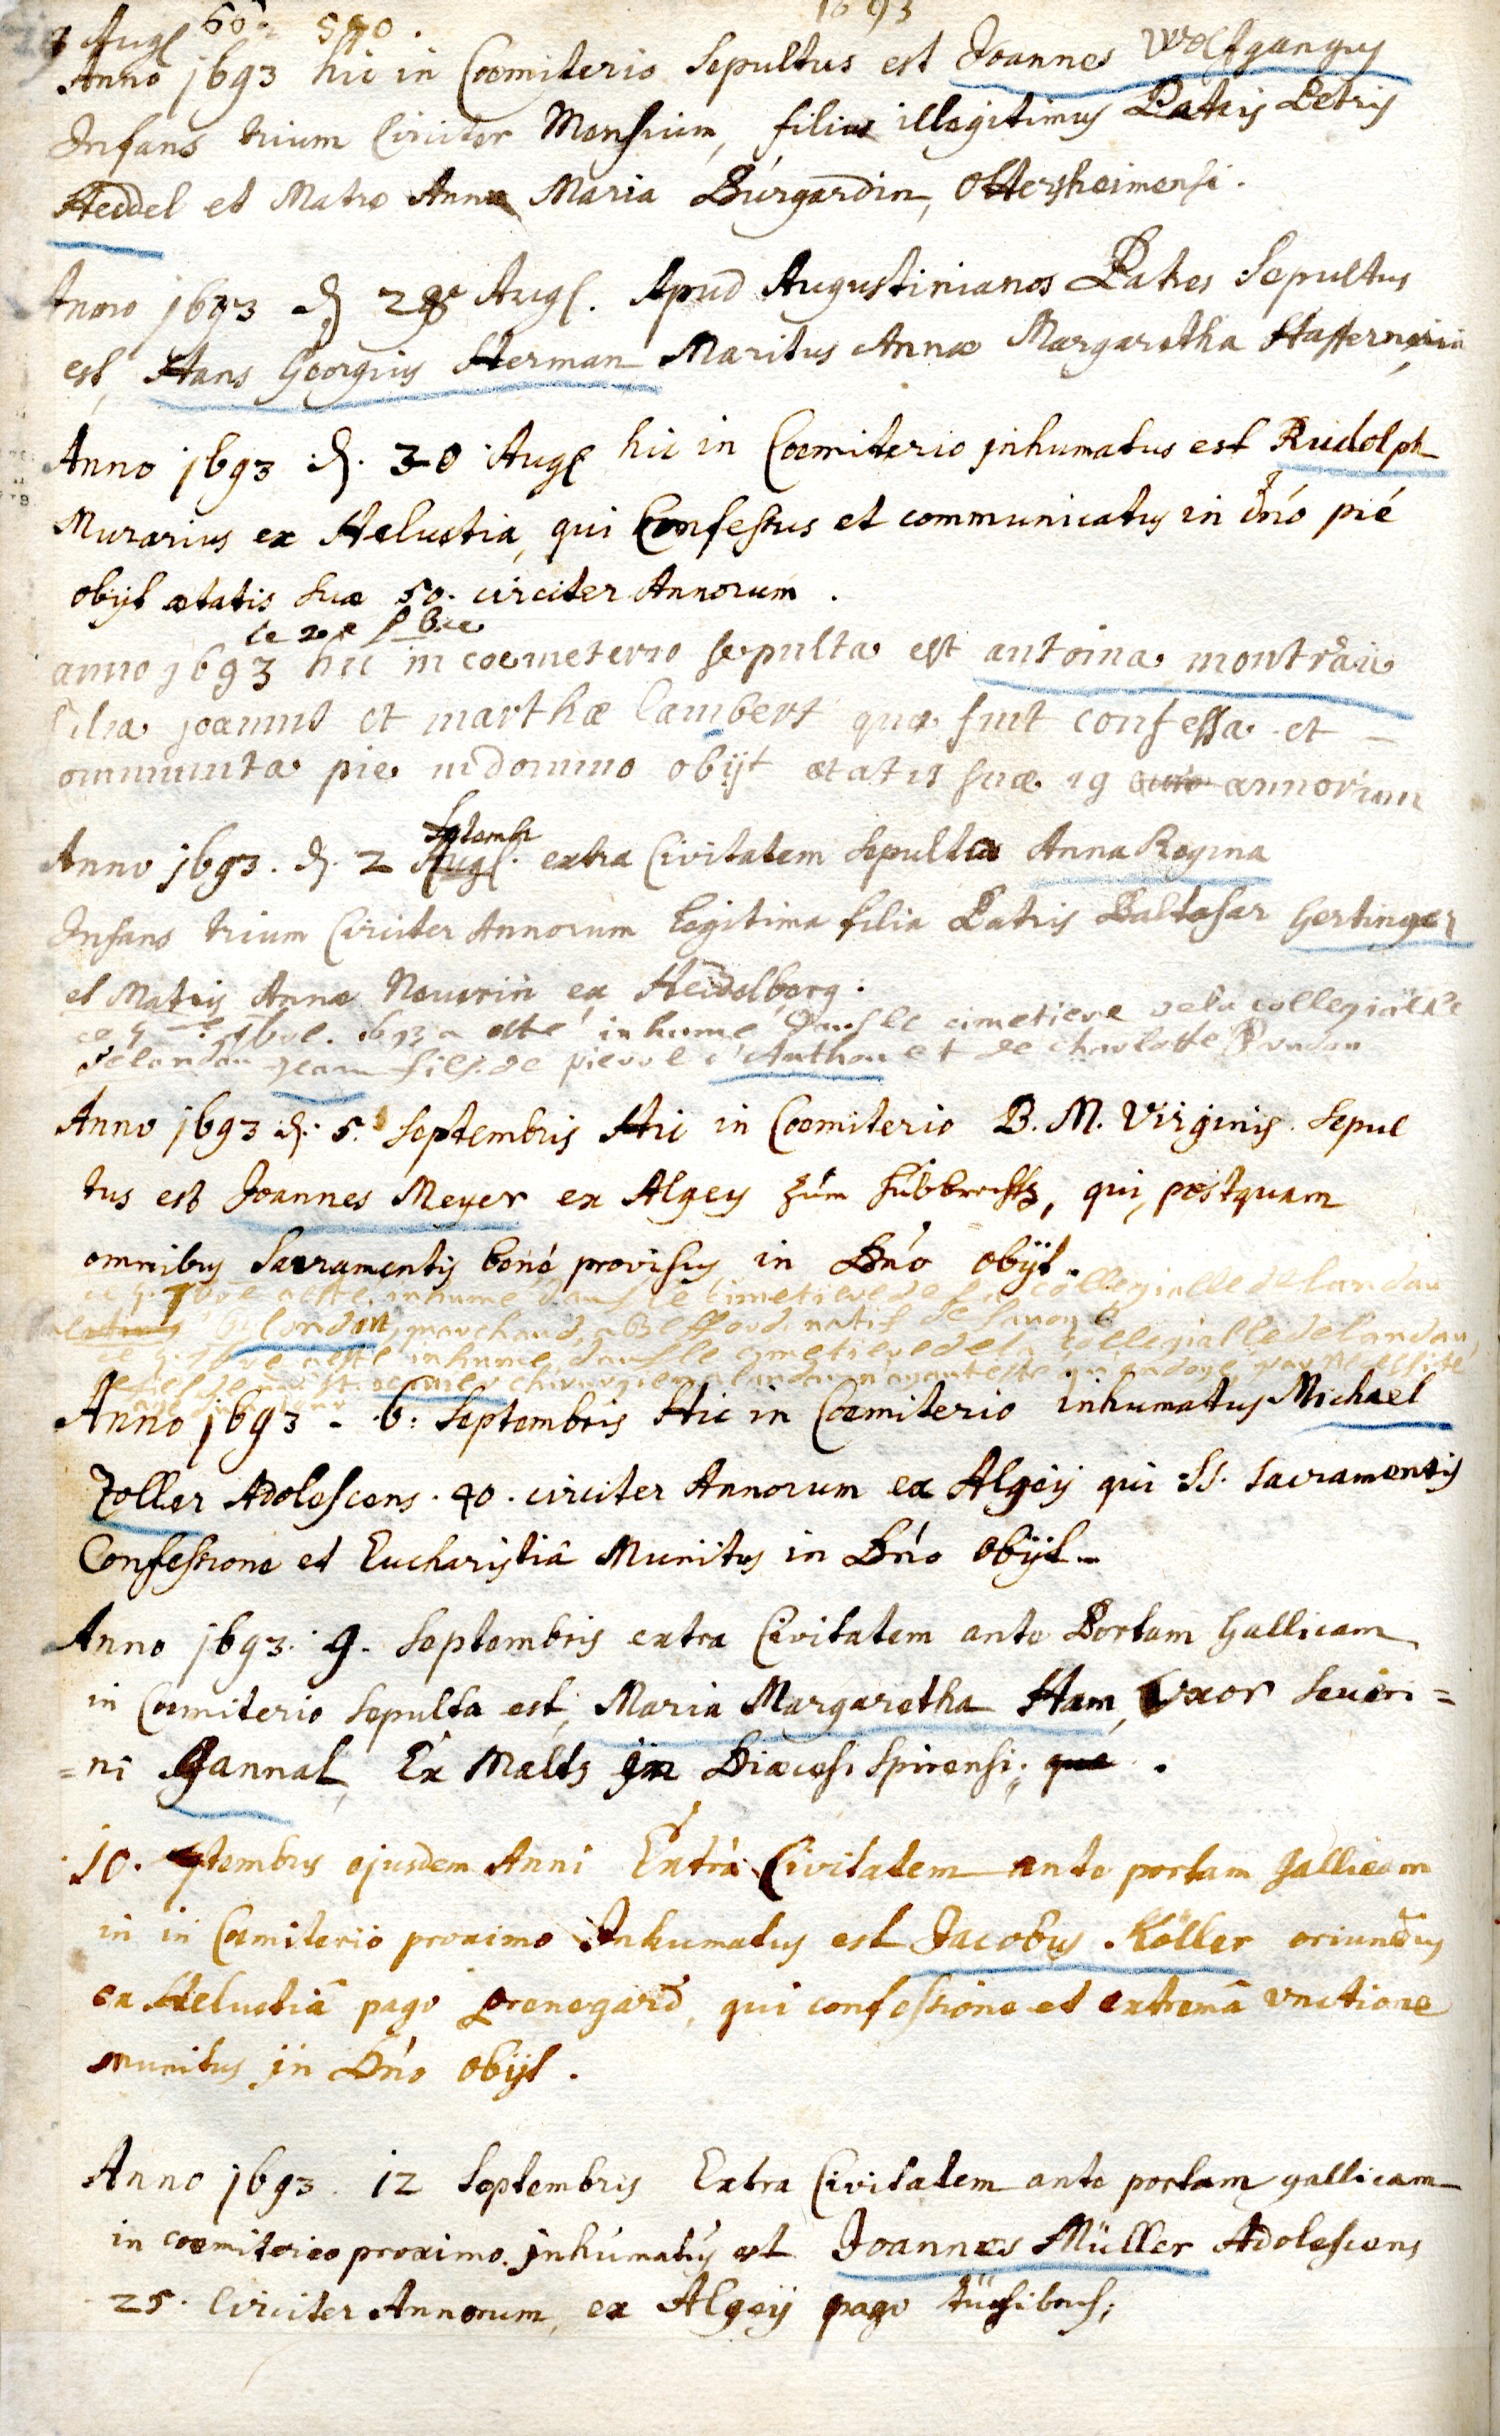 1693
3 Aug
Anno 1693 hic in Coemiterio Sepultus est Joannes Wolfgangus
Infans trium Circiter Mensium, filius illegitimus Patris Petris
Heddel et Matre Anna Maria Búrgardin, Ottersheimensi.
Anno 1693 d. 28 Aug. Apud Augustinianos Patres Sepultus
est, Hans Georgius Herman Maritus Annæ Margaretha Haffnerin
Anno 1693 d. 30 Aug hic in Coemiterio inhumatus est Rudolph
Murarius ex Helvetia, qui Confessus et communicatus in dño pié
obijt ætatis suæ 50. circiter Annorum.
le 2e 7bre
anno 1693 hic in coemeterio sepulta est antoina
filia joannis et marthæ lambert quæ fuit confessa et
pie in domino obijt ætatis suæ 19 annorum
Septemb
Anno 1693. d. 2 Aug. extra Civitatem Sepulta Anna Regina
Infans trium Circiter Annorum legitima filia Patris Baltasar Gertinger
et Matris Annæ Neuerin ex Heidelberg.
ce 4 7bre 1693 a esté inhumé dans le cimetiere de la collegialle
de landau jean fils de pierre d'Authon et de charlotte
Anno 1693 d. 5. Septembris Hic in Coemiterio B. M. Virginis. Sepul
tus est Joannes Meyer ex Algey zúm, qui, postquam
omnibus Sacramentis bené provisus in Dño obijt.
ce 7bre a esté inhumé dans le cimetiere de la collegialle de landau
marchand a natif de
ce 7bre a esté inhumé dans le cymetiere de la collegialle de landau
chirurgien a landau par necessité
Anno 1693 - 6: Septembris Hic in Coemiterio inhumatus Michael
Zoller Adolescens. 40. circiter Annorum ex Algeij qui SS. Sacramentis
Confessione et Eucharistiâ Munitus in Dño obijt.
Anno 1693. 9. Septembris extra Civitatem ante Portam Gallicam
in Coemiterio Sepulta est, Maria Margaretha Ham, Vxor Severi=
=ni Gannal, Ex Malts in Diæcesi Spirensi; quæ.
10. 7tembris ejusdem Anni Extrà Civitatem ante portam gallicam
in in Coemiterio proximo Inhumatus est Jacobus Köller oriundus
ex Helvetiâ pago Grenegard, qui confessione et extremâ vnctione
munitus in Dño obijt.
Anno 1693. 12 Septembris Extra Civitatem ante portam gallicam
in coemiterio proximo. inhúmatús est Joannes Müller Adolescens
25. Circiter Annorum, ex Algeij pago